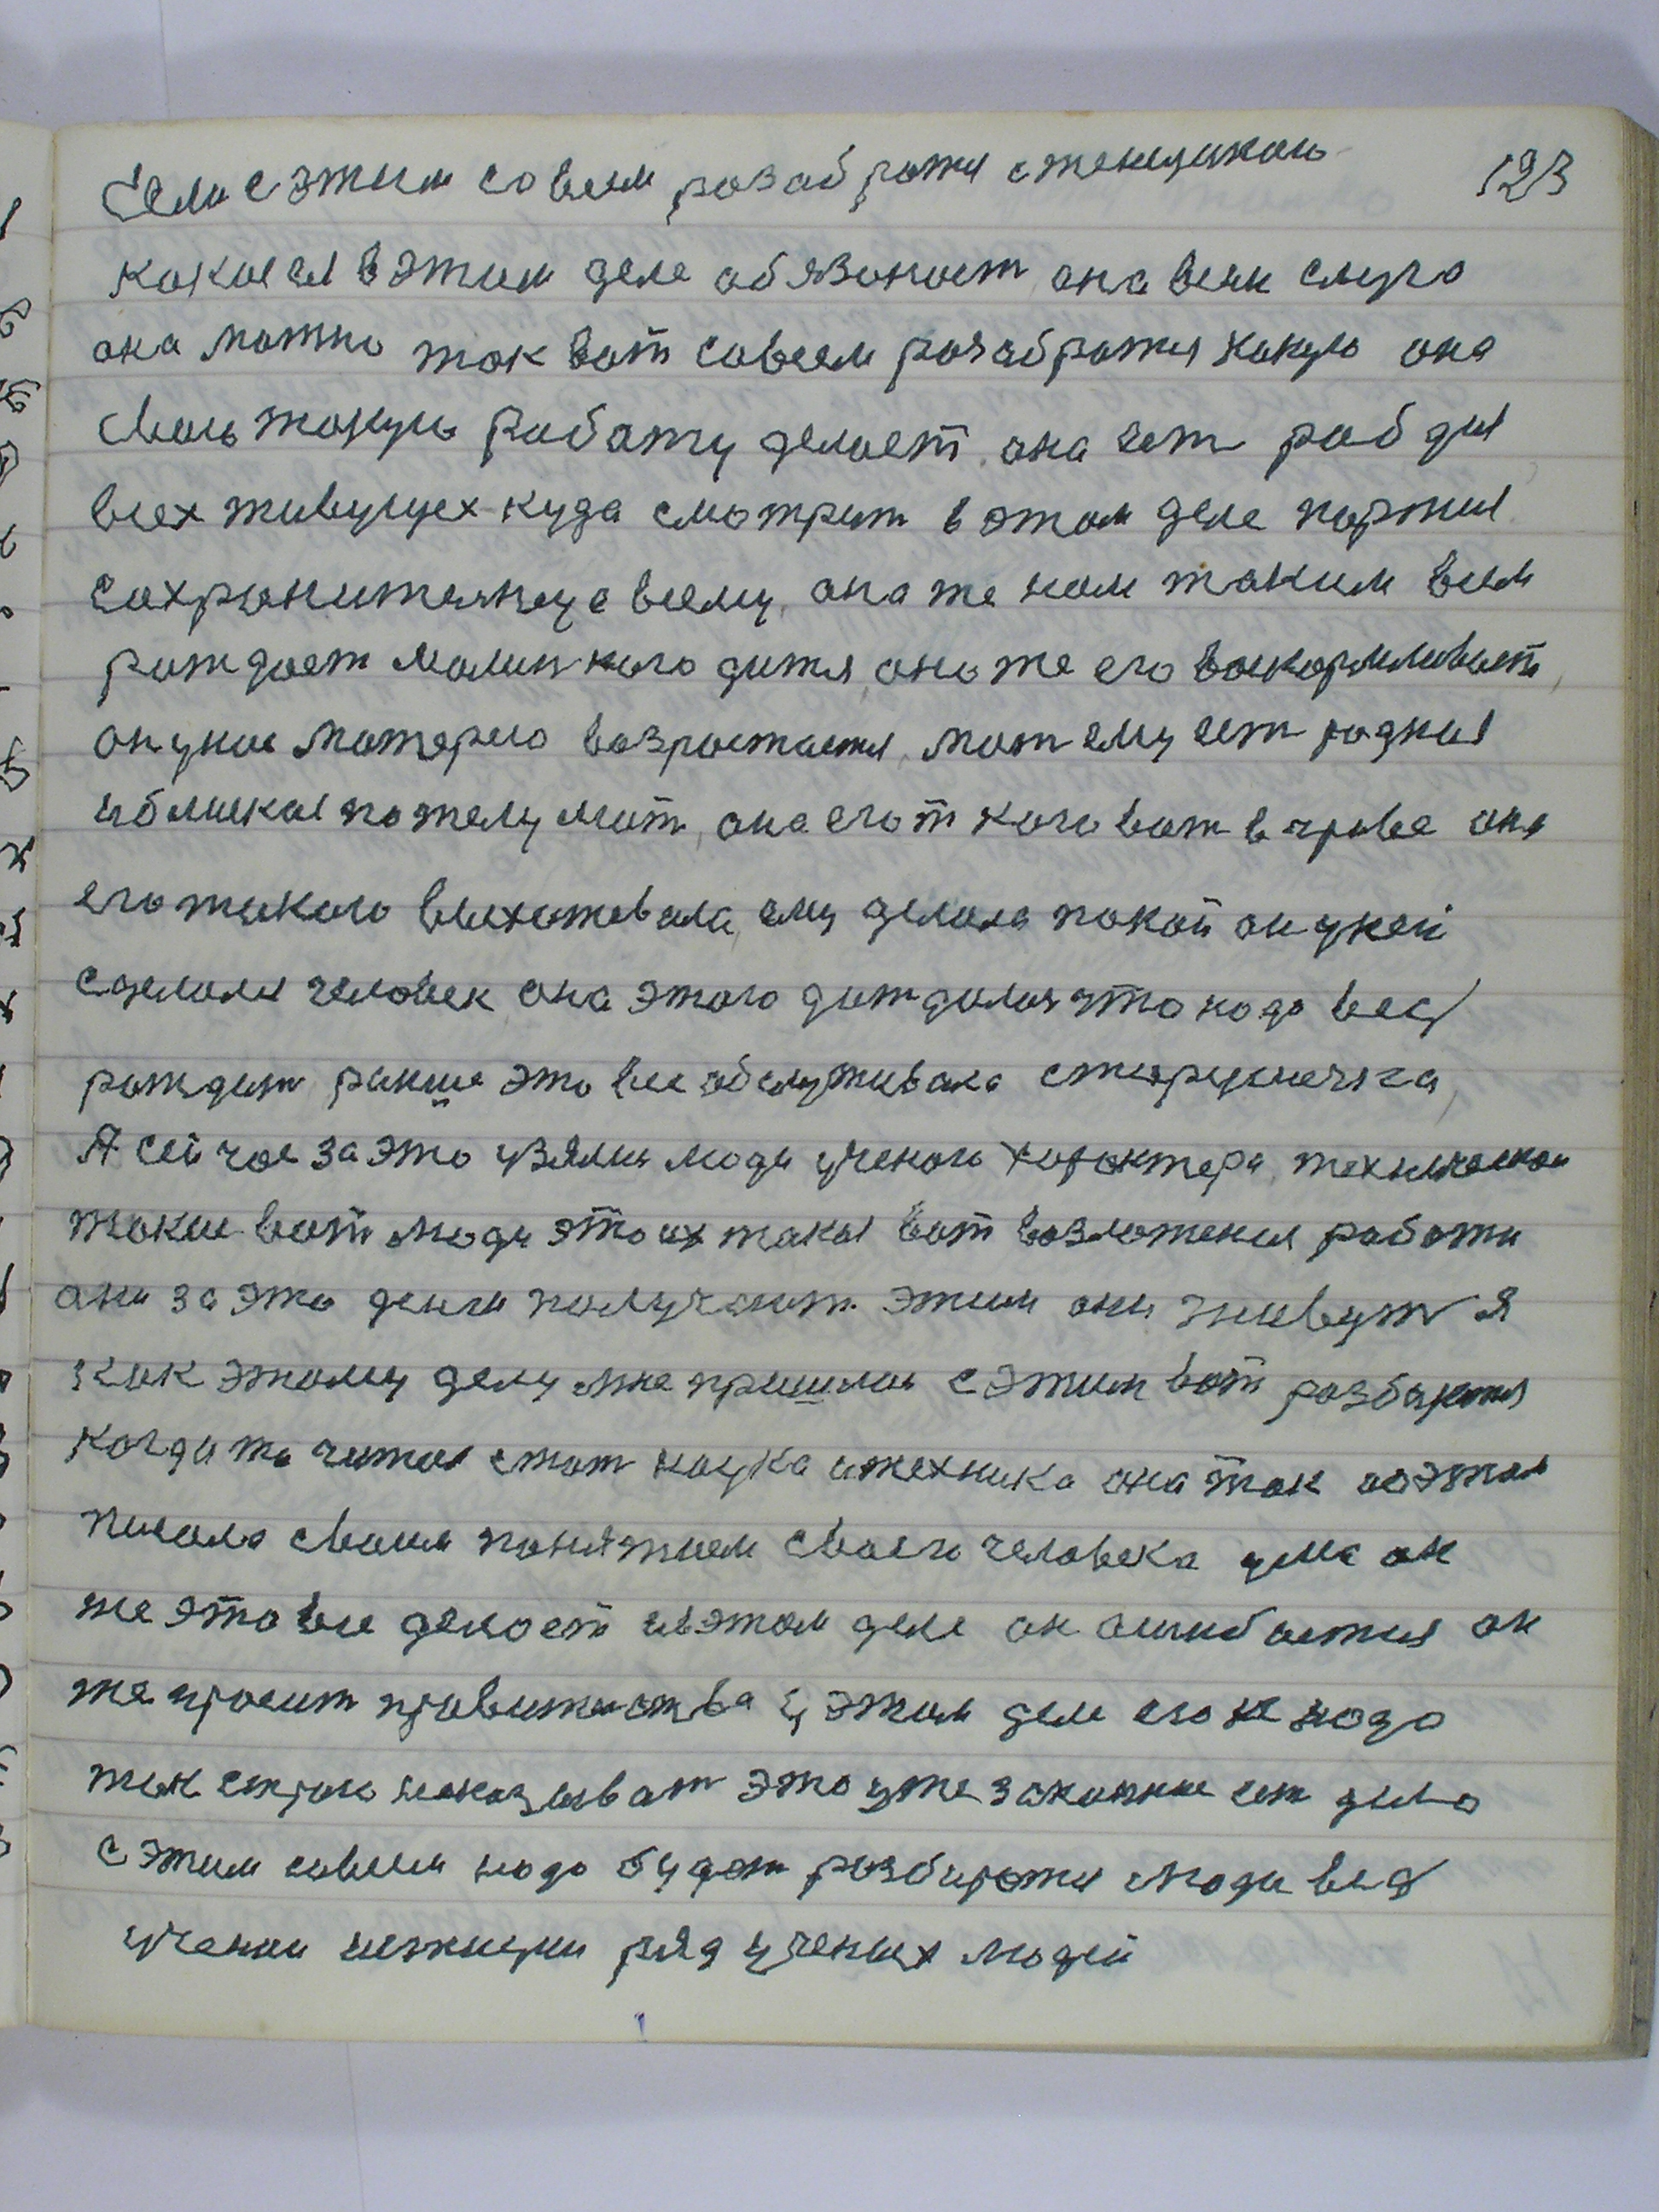 123
Если с этим совсем розабратся с тенщиною
какие ей в этим деле обязоност она всем слуга
она можно ток вот совсем розабратся какую она
свою такую работу делает она ест раб для
всех живущех куда смотрит в этом деле портия
сохранительнеца всему, она же нам таким всем
рождает малинкого дитя, она же его воскормливает,
он у нее матерью возростается, мат ему ест родная
иблиская по телу мат, она его такого вот в чреве она
его такого выхатевала, ему делала покой он у ней
сделался человек она этого дождалас что надо вед
рождат ранше это все обслуживала старушечка,
А сейчас за это узялис люди ученого характера, техническои
такие вот люди это их такая вот возложеная работа
они за это денги получают этим они живут я
как этому делу мне пришлос с этим вот розбиратся
когда то читая стат наука и техника она так об этом
писала своим понятием своего человека ума он
же это все делает и в этом деле он ошибается он
же просит правителства у этом деле его не надо
так строго наказыват это уже законное ест дело
с этим совсем надо будет розбиратся люди вед
ученаи ижнцуи ряд ученых людей